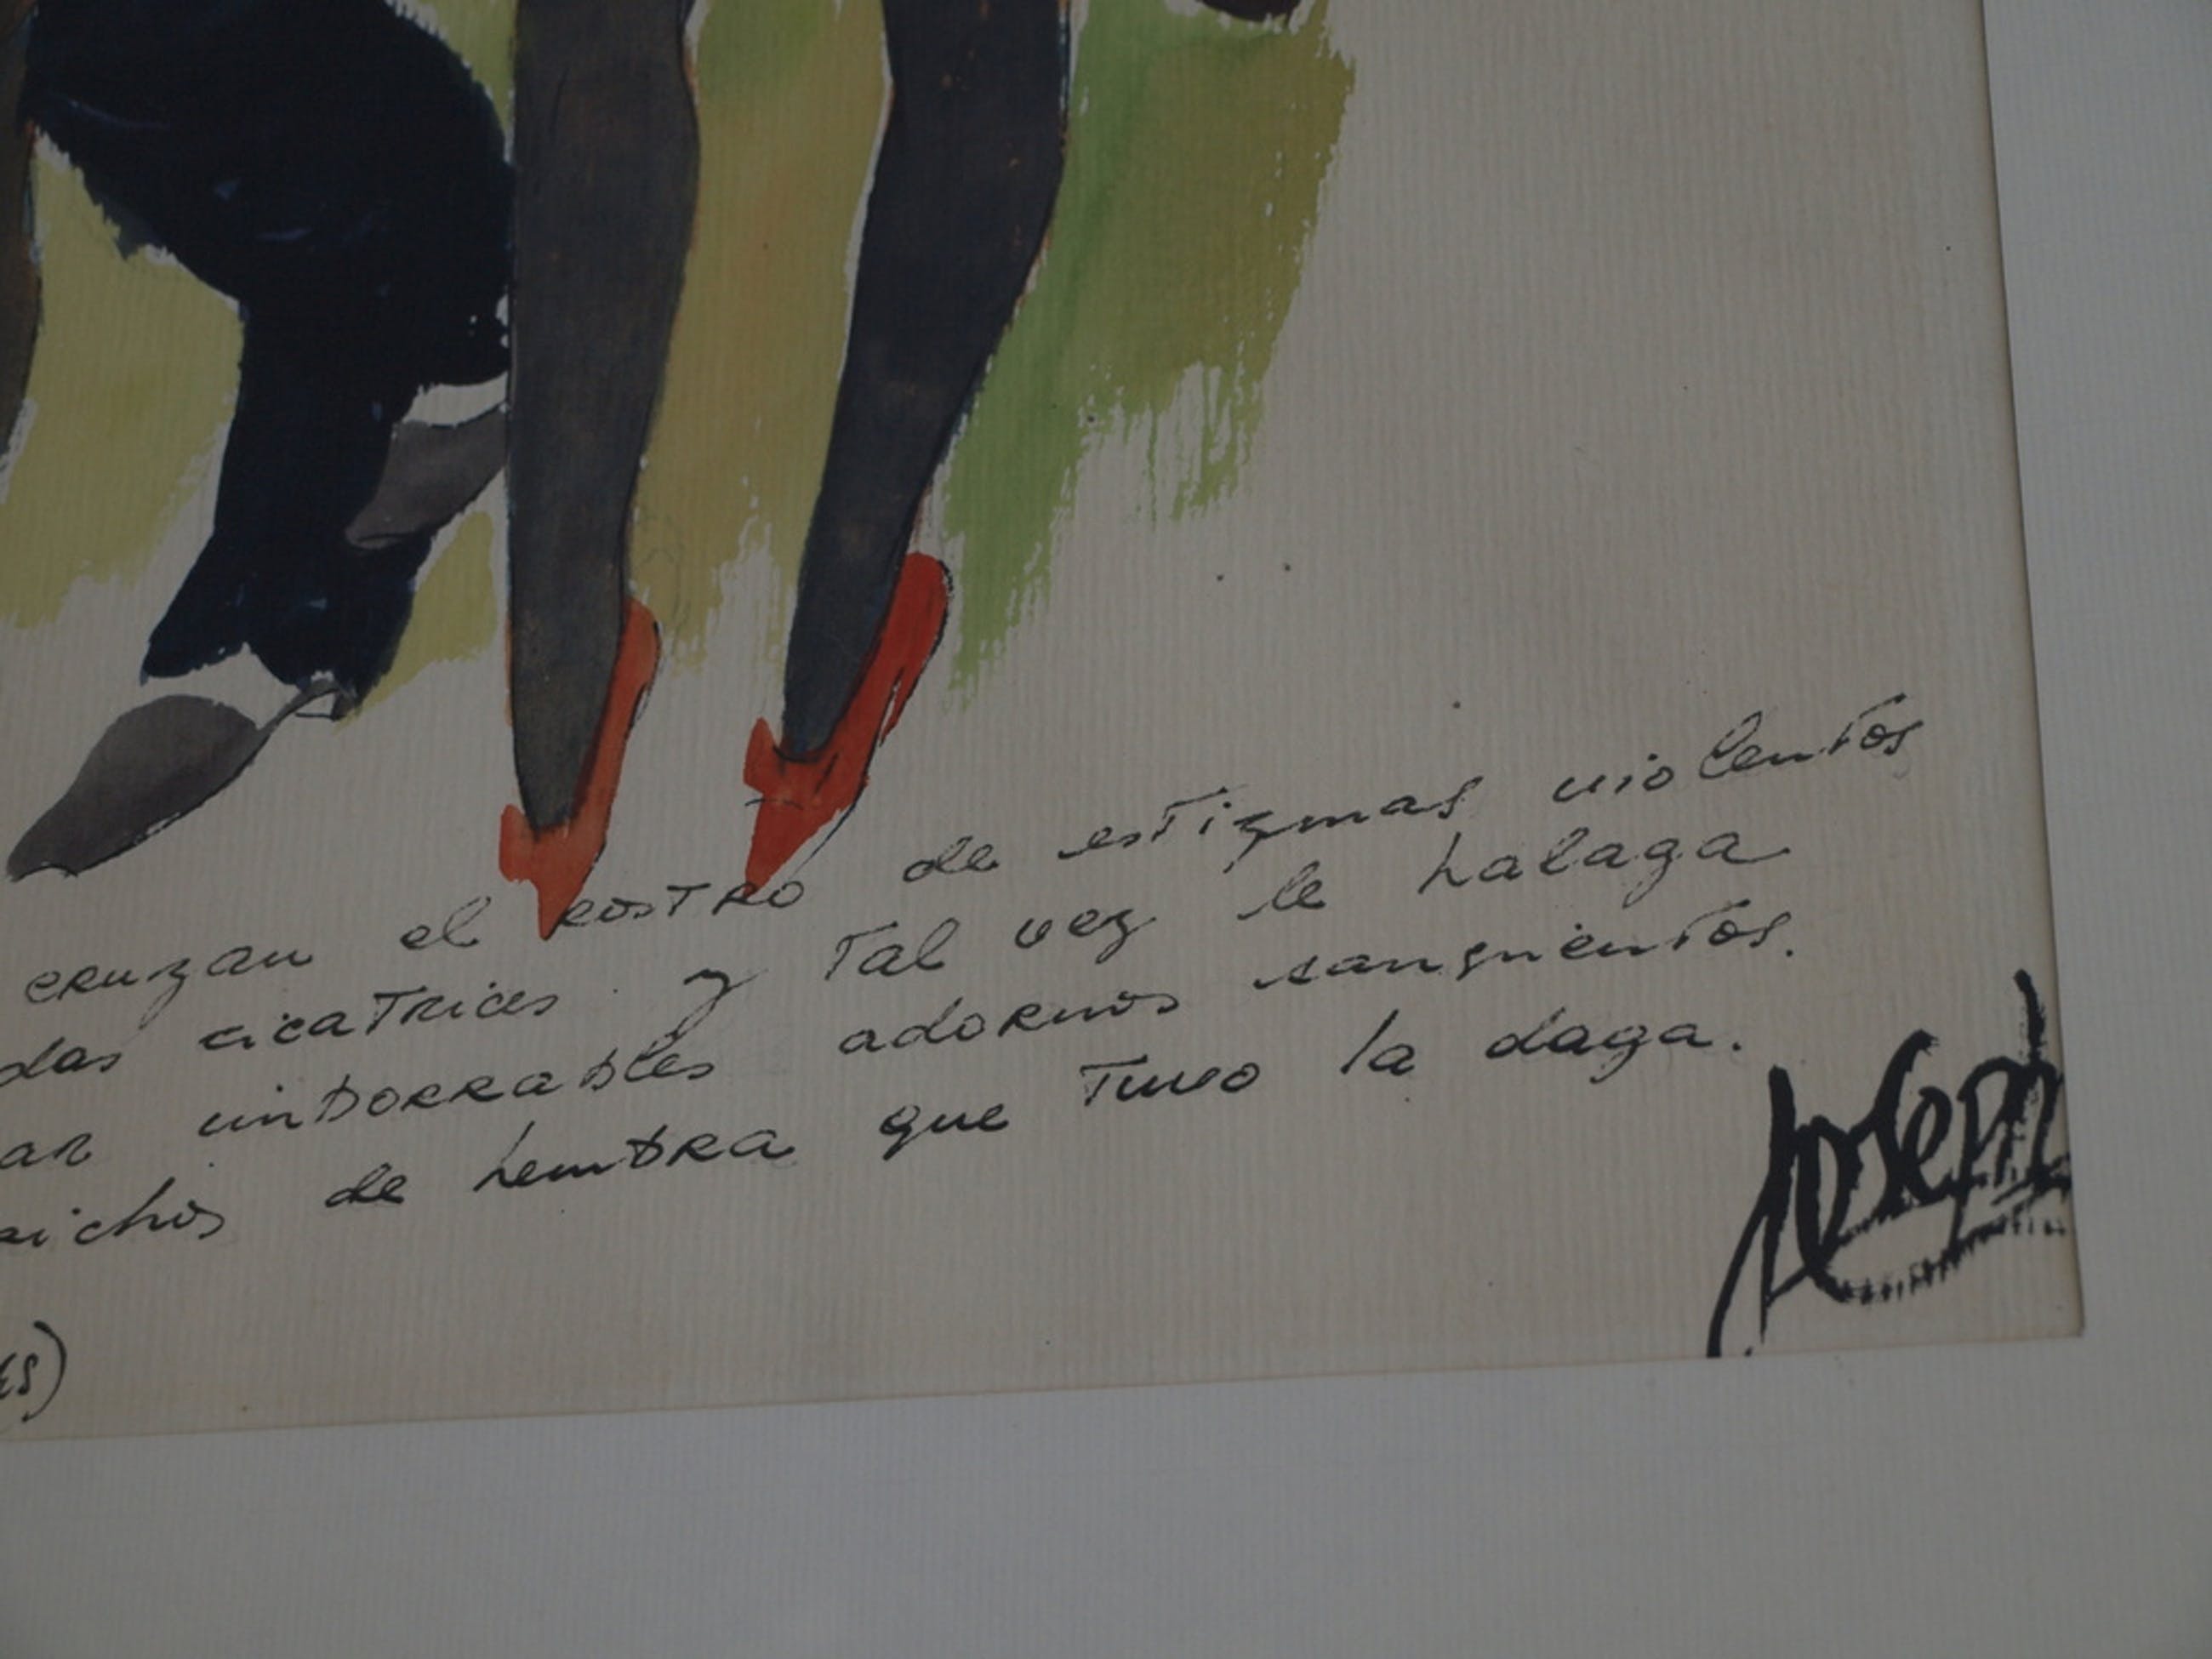 cruzan el rostro de estigmas violentos
das cicatrices y tal vez le halaga
ar imborrables adornos sangrientos.
richos de hembra que tuvo la daga.
es)
Joseph